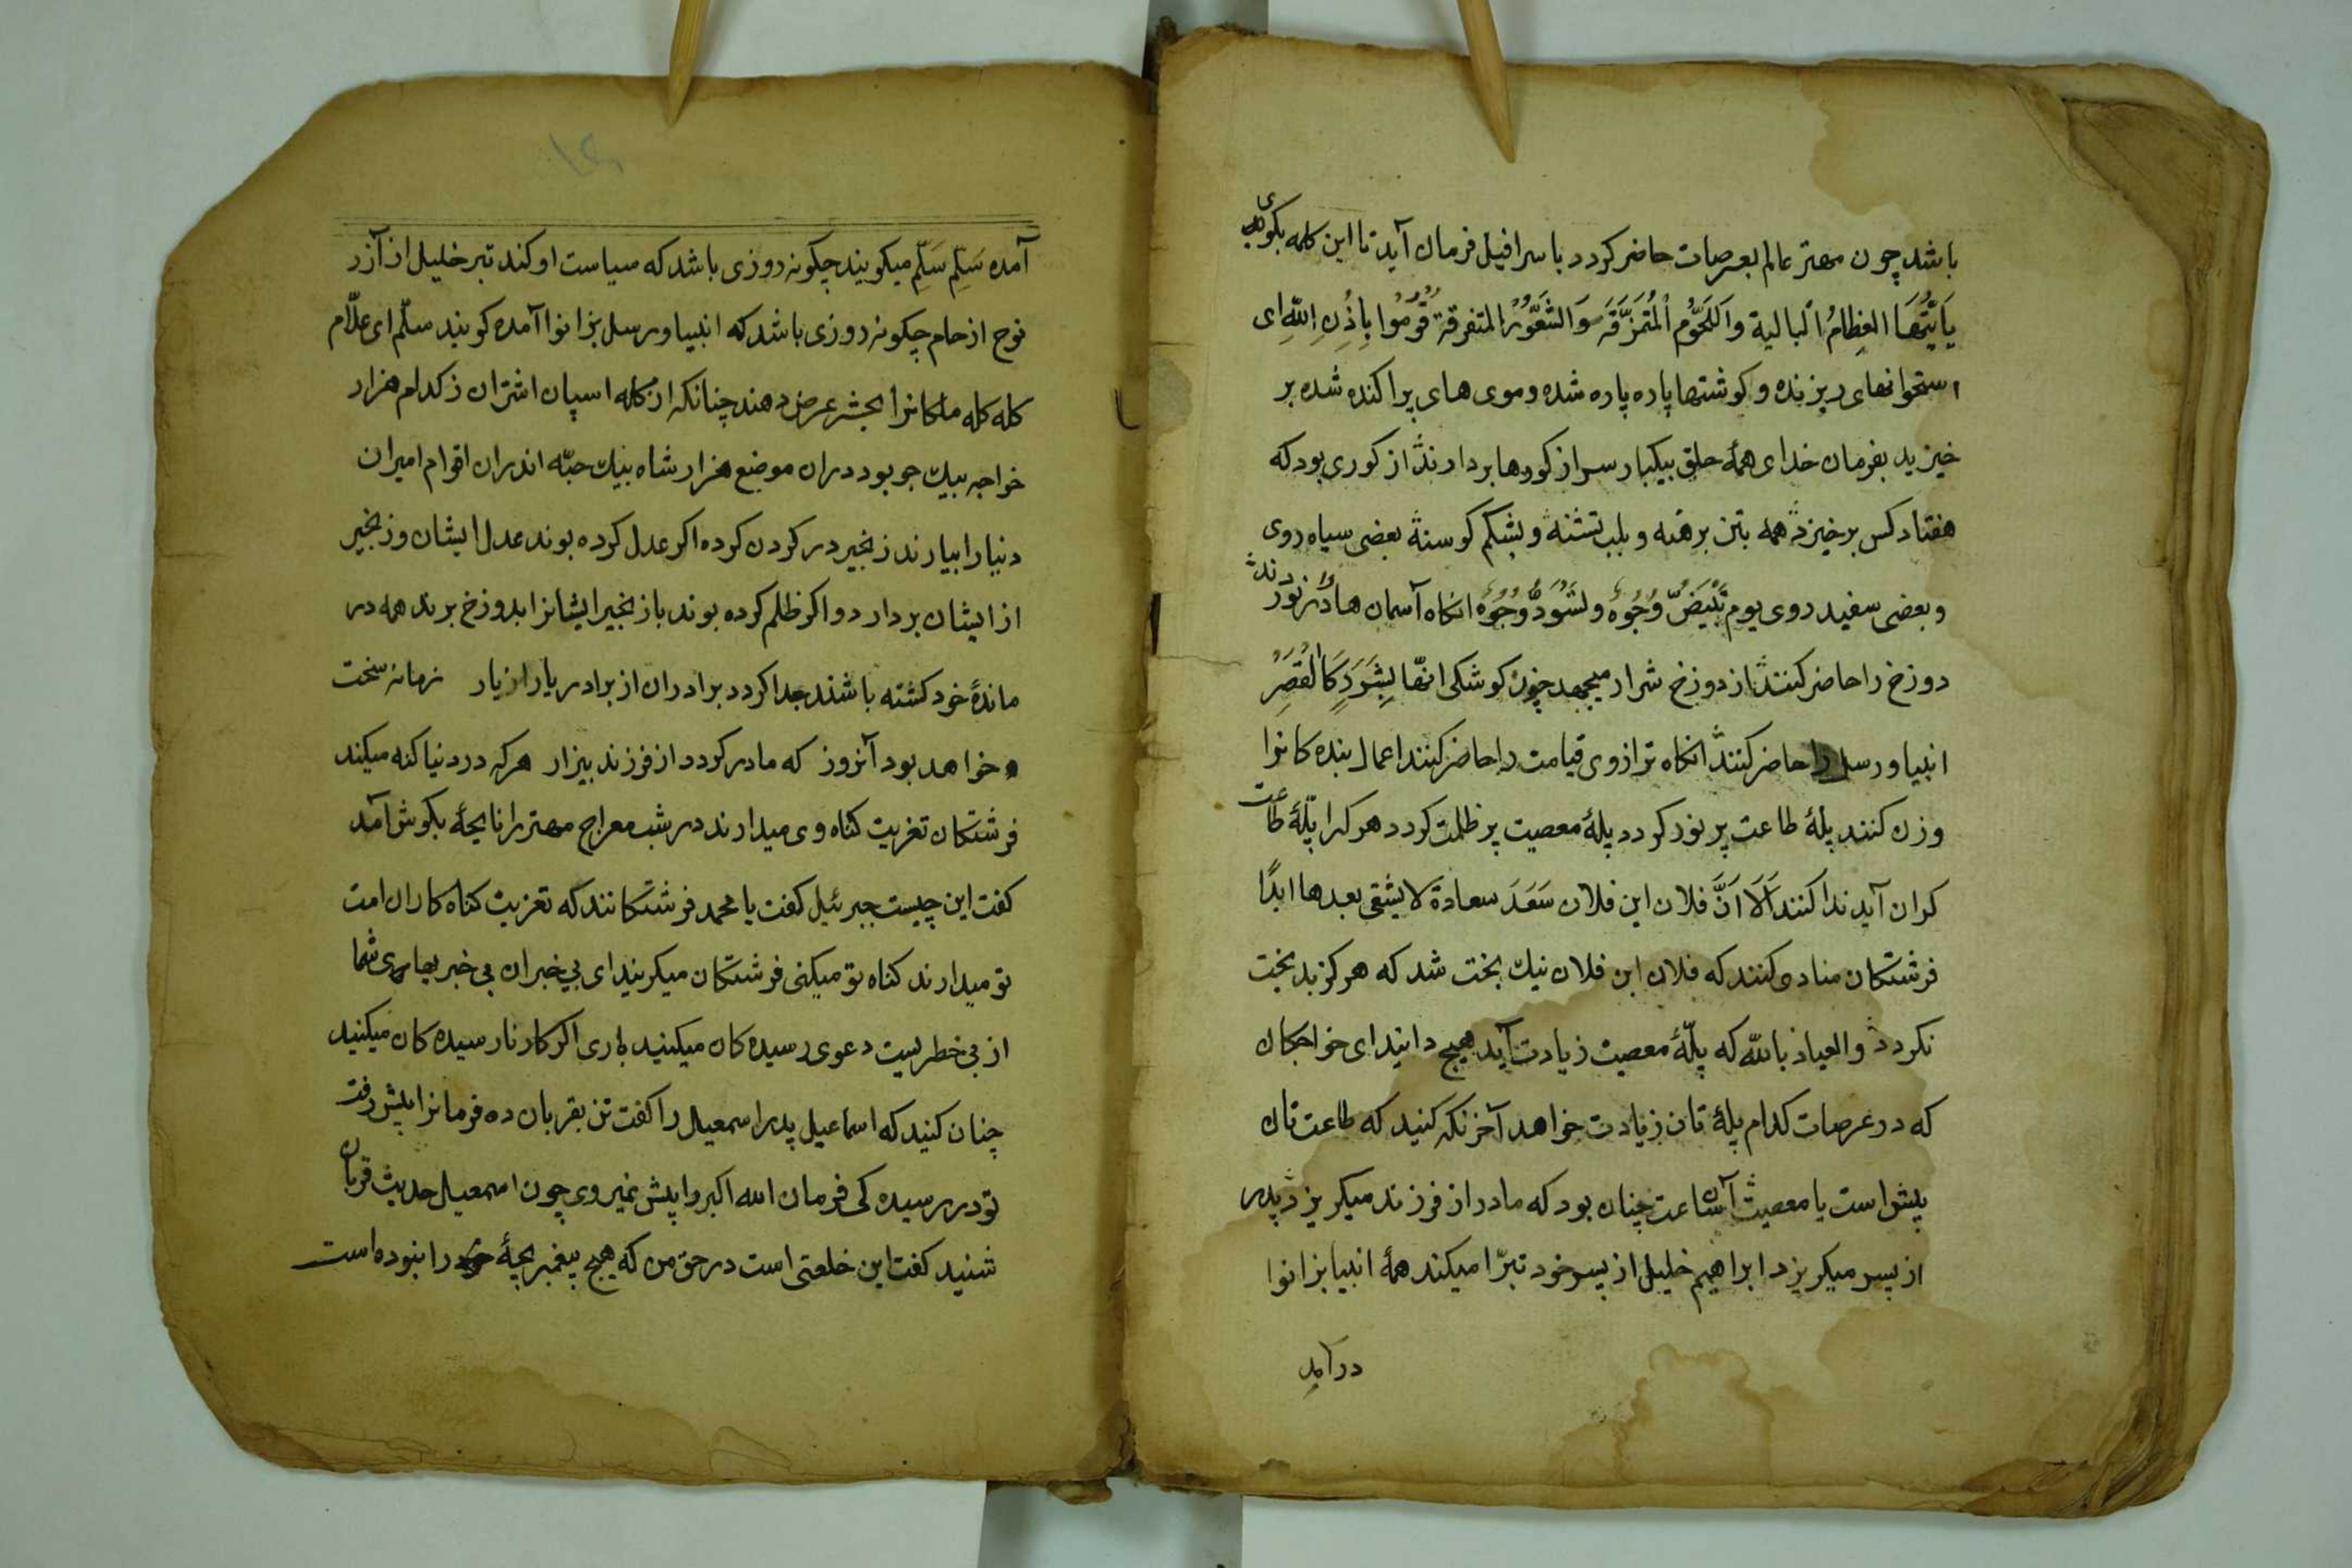 باشد چون مهتر عالم بعرصات حاضر کردد باسرافیل فرمان آید تا این کلمه بکوی
یَاَیَّتُهَا العِظامُ البالیة واَللَحُّوم اَلمُتَمَزَّقَه وَالشَعُّوُرُ المتفرقة قُومُوا بِاِذنِ اللّهِ ای
استخوانهای ریزنده و کوشتها پاره پاره شده و موی های پراکنده شده بر
خیزید بفرمان خدای همهٔ خلق بیکبار سر از کورها بردارند از کوری بود که
هفتاد کس برخیزد همه بتن برهنه و بلب تشنه و بشکم کوسنة بعضی سیاه روی
و بعضی سفید روی یوم تَبْیَضُّ وُجُوهُ وتَسْوَدُّ وُجُوهُ انکاه آسمان هارا در نوردند
دوزخ را حاضر کنند از دوزخ شرار میجهد چون کوشکی انّها بِشَرَرٍ کَالْقَصْرِ
انبیا و رسل را حاضر کنند انکاه ترازوی قیامت را حاضر کنند اعمال بنده کانوا
وزن کنند پلهٔ طاعت پر نور کردد پلهٔ معصیت پر ظلمت کردد هر کرا پلّهٔ طاعت
کران آید ندا کنند اَلَا اَنَّ فلان ابن فلان سَعَدَ سعادة لا یشقی بعدها ابدًا
فرشتکان منادی کنند که فلان ابن فلان نیك بخت شد که هرکز بد بخت
نکردد والعیاذ باللّه که پلّهٔ معصیت زیادت آید هیچ دانید ای خواجکان
که در عرصات کدام پلهٔ تان زیادت خواهد آخر نکه کنید که طاعت تان
بیش است یا معصیت آن ساعت چنان بود که مادر از فرزند میکریزد پدر
از پسر میکریزد ابراهیم خلیل از پسر خود تبرّا میکند همهٔ انبیا بزانوا
در آمده
آمده سَلِّم سَلِّم میکویند چکونه روزی باشد که سیاست او کند تبر خلیل از آزر
نوح از حام چکونه روزی باشد که انبیا و رسل بزانوا آمده کویند سلّم ای علّام
کله کله ملکانرا بحشر عرض دهند چنانکه از کله اسپان اشتران ز کدام هزار
خواجه بیك جو بود دران موضع هزار شاه بنیك حبّه اندران اقوام امیران
دنیا را بیارند زنجیر در کردن کرده اکر عدل کرده بوند عدل ایشان و زنجیر
از ایشان بردارد و اکر ظلم کرده بوند باز بخیر ایشانرا بدوزخ برند همه در
ماندهٔ خود کشته باشند جدا کردد برادران از برادر یار از یار زمانه سخت
خواهد بود آنروز که مادر کردد از فرزند بیزار هرکه در دنیا کنه میکند
فرشتکان تعزیت کناه وی میدارند در شب معراج مهتر را نایحهٔ بکوش آمد
کفت این چیست جبرئیل کفت یا محمد فرشتکانند که تعزیت کناه کاران امت
تو میدارند کناه تو میکنی فرشتکان میکریند ای بی خبران بی خبر شما
از بی خطریست دعوی رسیده کان میکنید باری اکر کار نارسیده کان میکنید
چنان کنید که اسماعیل پدر اسمعیل را کفت تن بقربان ده فرمانرا پیش رفت
تو در رسیده کی فرمان الله اکبر را پیش نمیروی چون اسمعیل حدیث قربان
شنید کفت این خلعتی است در حق من که هیچ پیغمبر بچهٔ را نبوده است